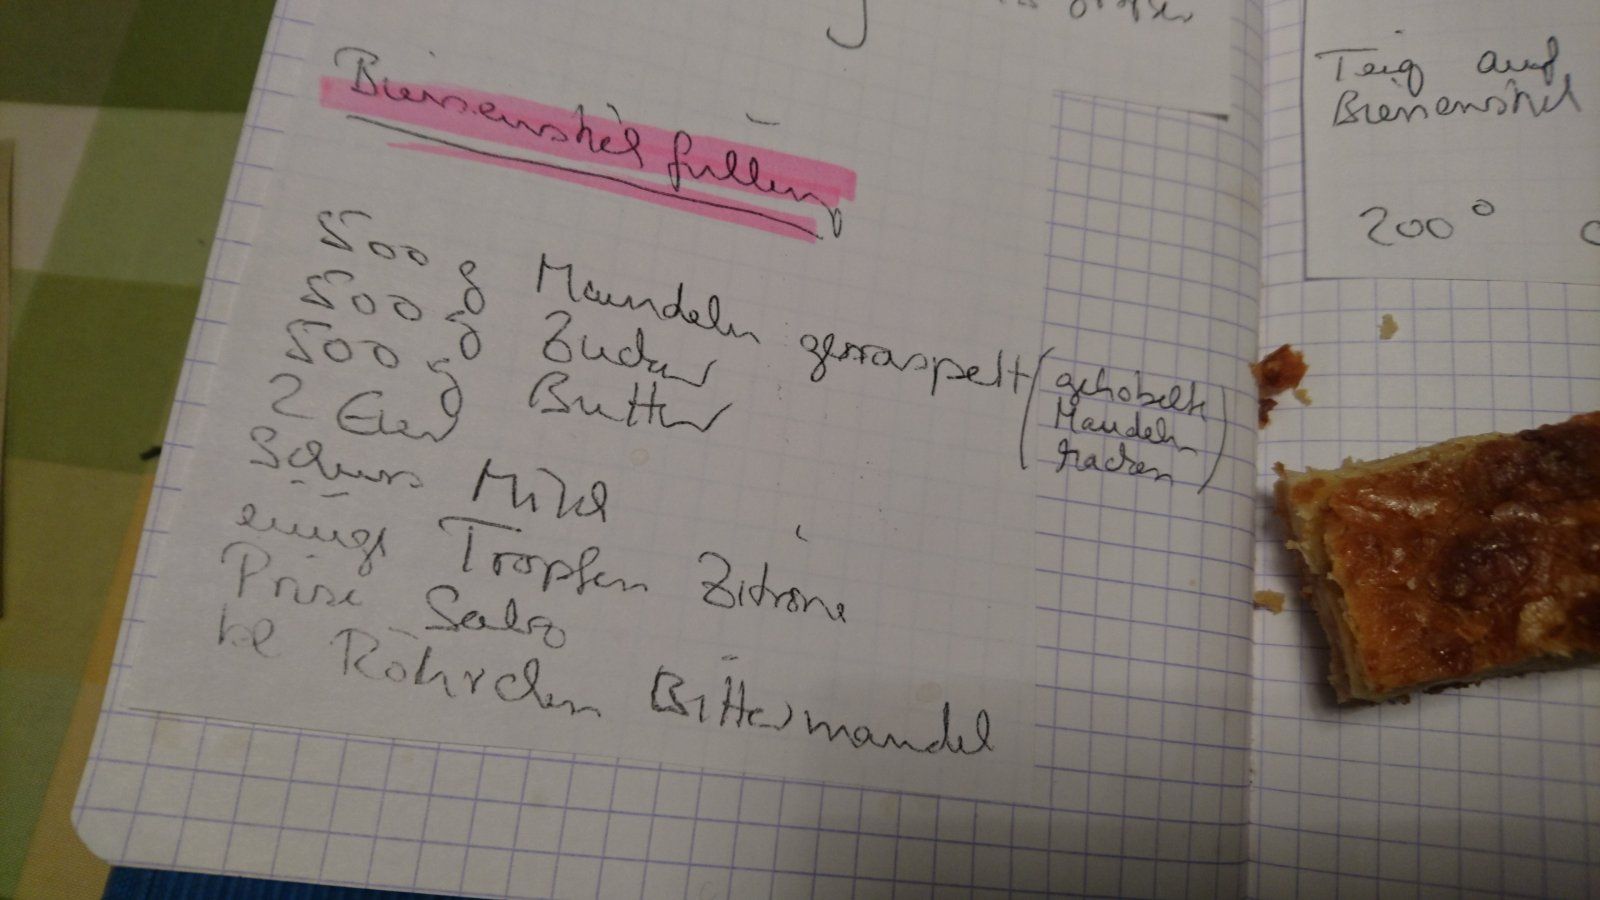 Bienenstich füllung
500 g Mandeln geraspelt (gehobelte Mandeln hacken)
500 g Zucker
500 g Butter
2 Eier
Schuss Milch
einige Tropfen Zitrone
Prise Salz
kl Röhrchen Bittermandel
Teig auf
Bienenstich
200°